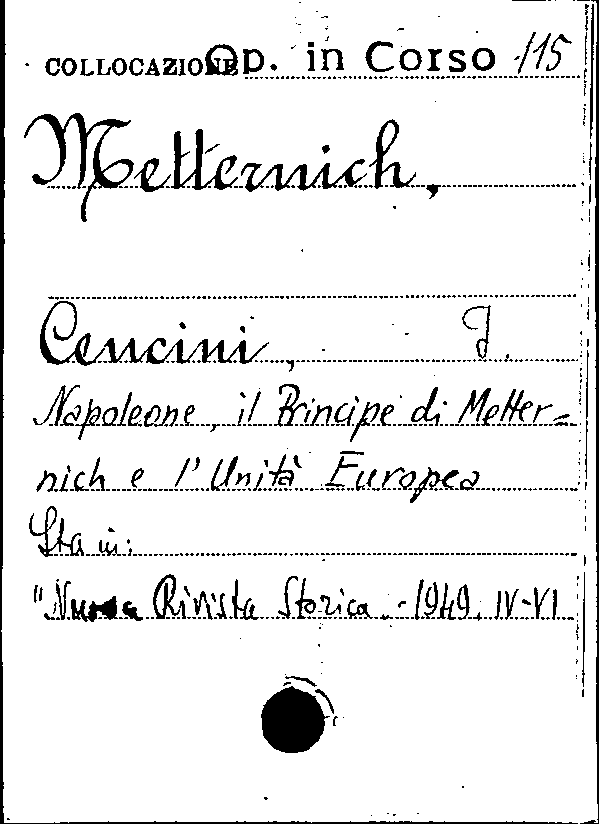 COLLOCAZIONE Op. in Corso /15
Metternich,
Cencini, J.
Napoleone, il Principe di Metter=
nich e l'Unità Europea
Sta in:
"Nuova Rivista Storica" - 1949. IV-VI